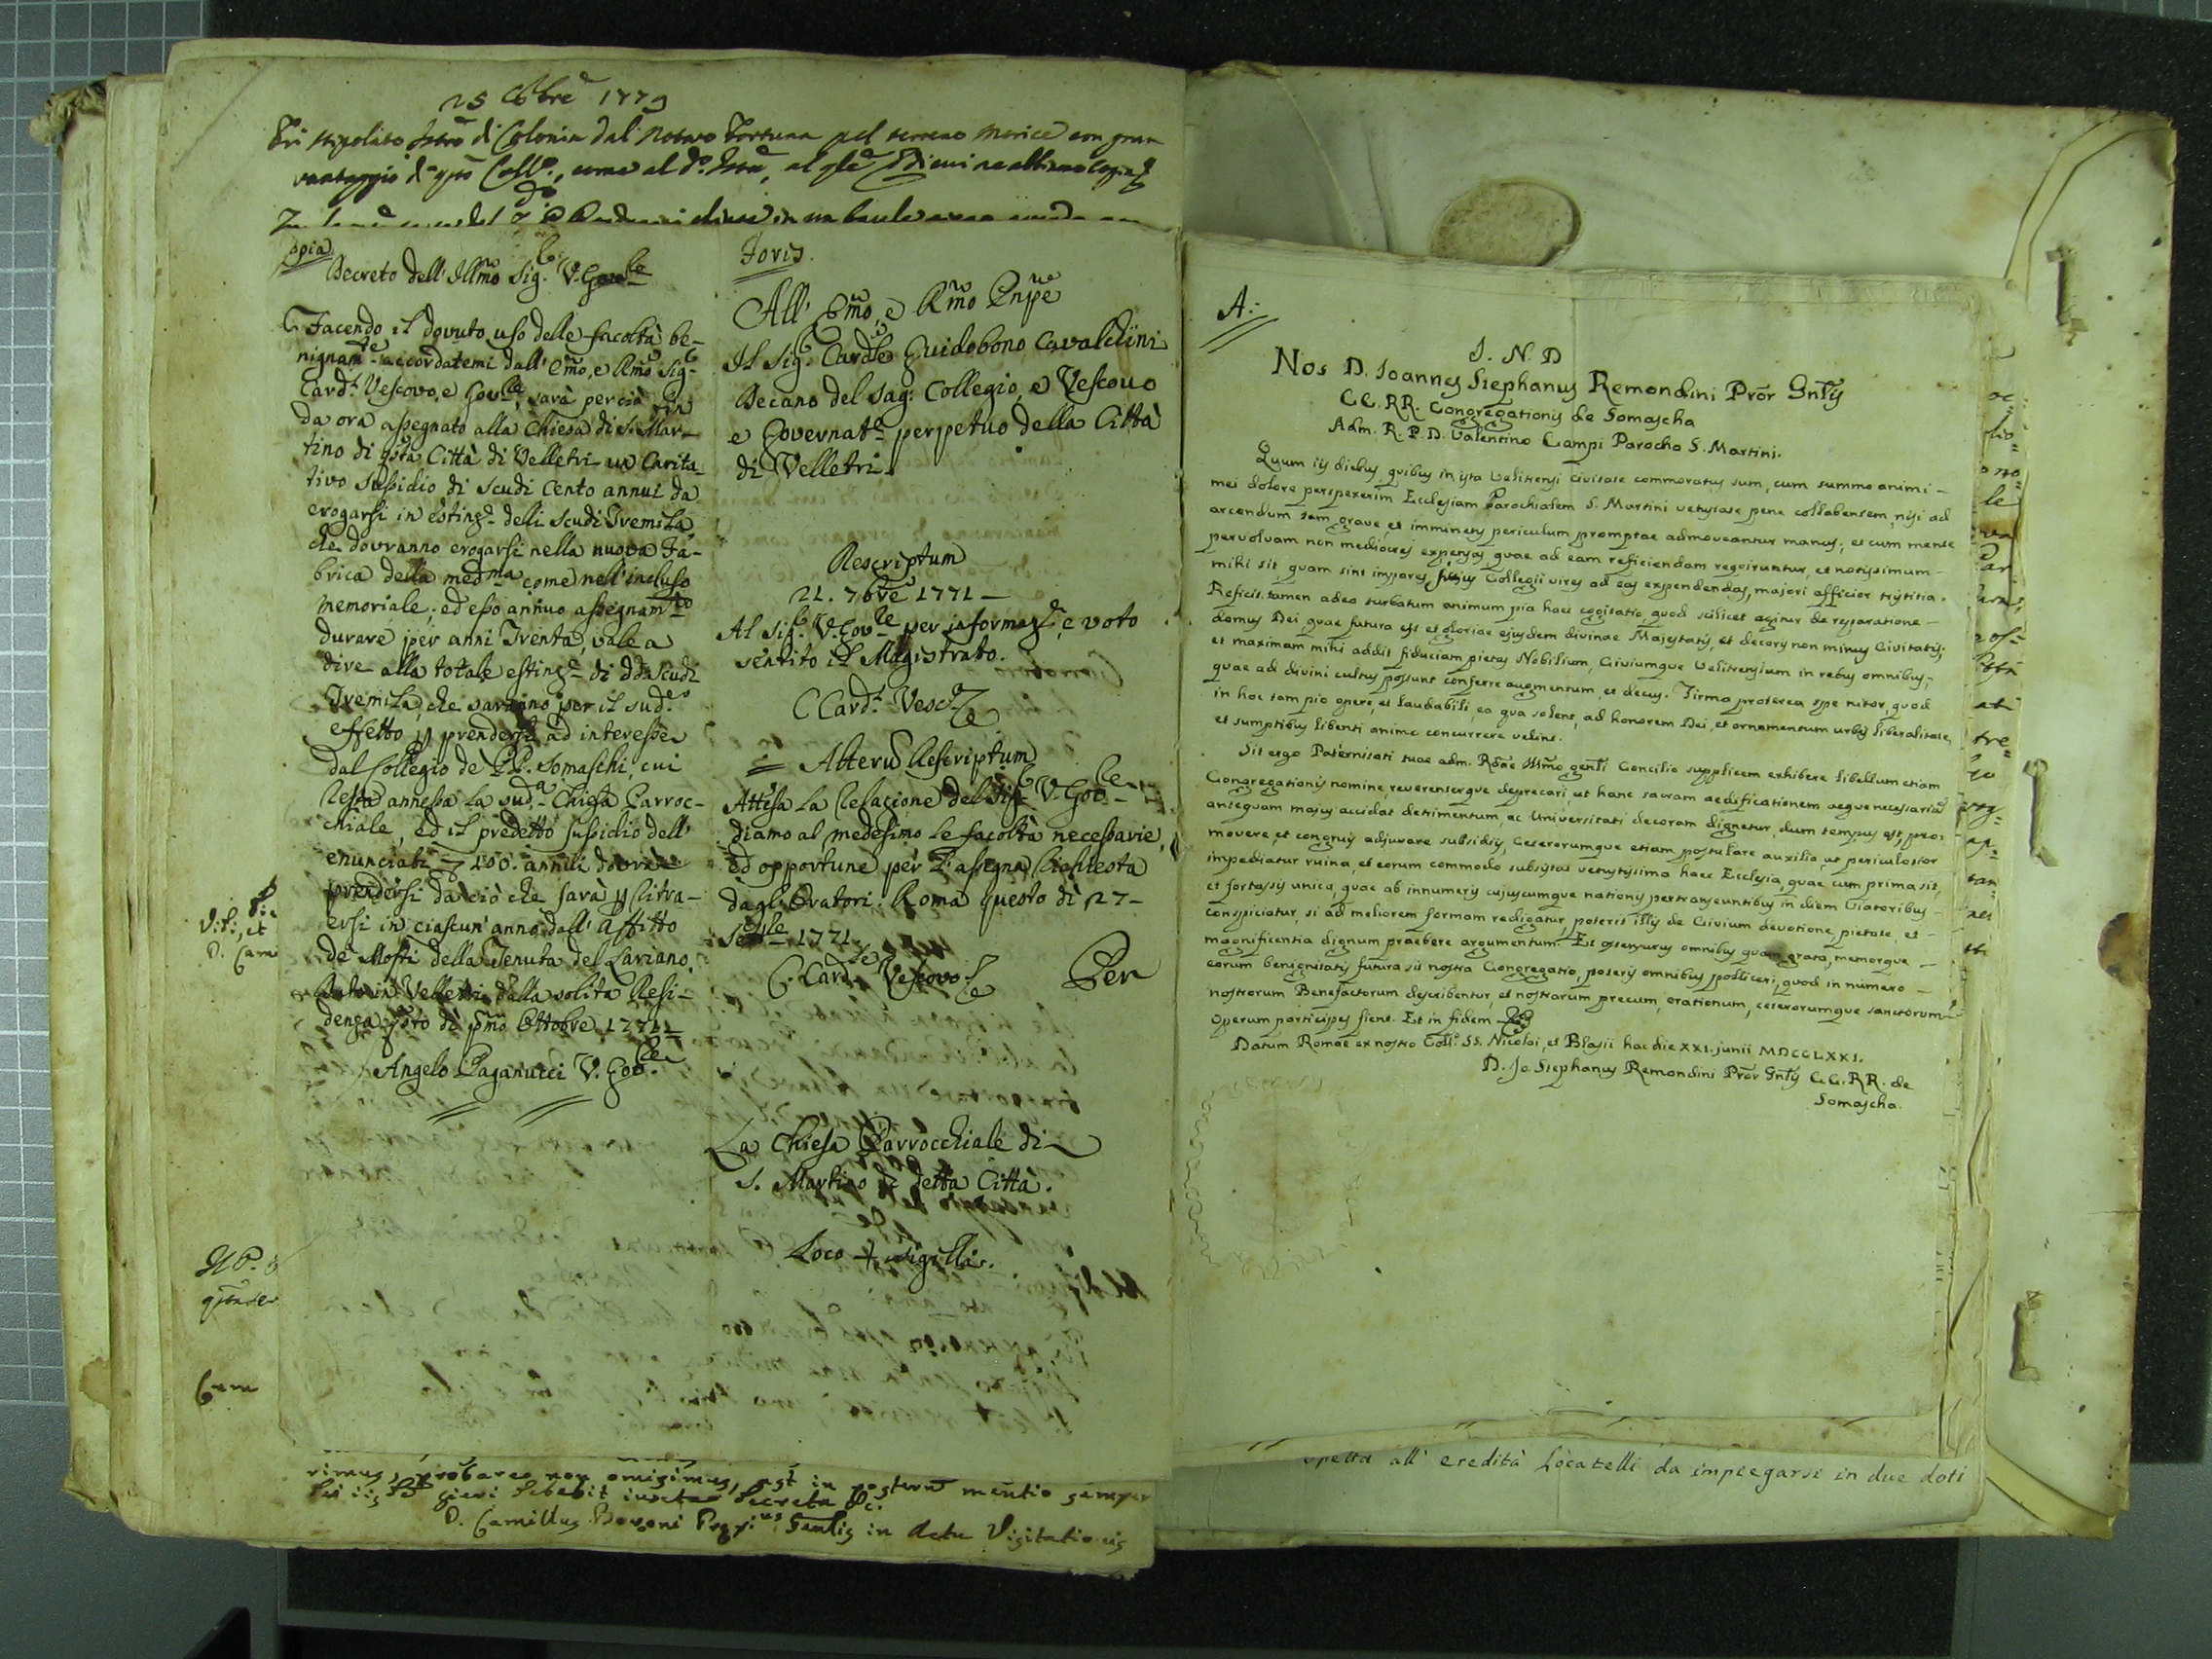 25 Xbre 1779
Fu stipolato Istro di Colonia dal Notaro Fortuna pel terreno Morice con gran
vantaggio di qsto Collo., come al do. Istro, al qle
Copia
Decreto dell' Illmo Sig.r V. Govle
Facendo il dovuto uso delle facoltà be-
nignamte accordatemi dall' Emo, e Rmo Sig.r
Card.l Vescovo, e Govle, sarà perciò fin
da ora assegnato alla Chiesa di S. Mar-
tino di qsta Città di Velletri un Carita-
tivo Sussidio di scudi Cento annui da
erogarsi in esting.e delli scudi Tremila,
che dovranno erogarsi nella nuova Fa-
brica della medma come nell' incluso
memoriale; ed esso annuo assegnamto
durare per anni Trenta, vale a
dire alla totale esting.e di dd. scudi
Tremila, che saranno per il sud.o
effetto prendersi ad interesse
dal Collegio de' PP. Somaschi, cui
resta annessa la sud.a Chiesa Parroc-
chiale, ed il predetto sussidio dell'
enunciati 100. annui dovrà
prendersi da ciò che sarà p ritra-
ersi in ciascun' anno dall' Affitto
de Mosti della Tenuta del Lariano.
Dato in Velletri dalla solita Resi-
denza qsto dì pmo Ottobre 1771
Angelo Paganucci V. Govle
Foris.
All' Emo, e Rmo Pnpe
Il Sig.r Cardle Guidobono Cavalchini
Decano del Sag: Collegio, e Vescovo
e Governat.e perpetuo della Città
di Velletri.
Rescriptum
21. 7bre 1771
Al Sig.r V. Govle per informaz.e, e voto
sentito il Magistrato.
C Card.l Vesc.o
Alteru Rescriptum
Attesa la Relazione del Sig.r V. Govle
diamo al medesimo le facoltà necessarie,
ed opportune per l'assegna richiesta
dagl' Oratori. Roma questo dì 27
Sette 1771
C. Card.le Vescovo
Per
La Chiesa Parrocchiale di
S. Martino di detta Città.
Loco + sigilli.
rimus, probare non omisimus, ast in posteru mentio semper
fieri debebit iuxta Decreta &c.
D. Camillus Bovoni Prep.us Gnlis in Actu Visitationis
A:
I. N. D
Nos D. Ioannes Stephanus Remondini Prōr Gnlis
CC. RR. Congregationis de Somascha
Adm. R. P. D. Valentino Campi Parocho S. Martini.
Quum iis diebus, quibus in ista Veliternsi Civitate commoratus sum, cum summo animi -
mei dolore perspexerim Ecclesiam Parochialem S. Martini vetustate pene collabentem, nisi ad
arcendum tam grave, et imminens periculum promptae admoveantur manus; et cum mente
pervolvam non mediocres expensas, quae ad eam reficiendam requiruntur, et notissimum -
mihi sit quam sint impares istius Collegii vires ad eas expendendas, majori afficior tristitia.
Reficit tamen adeo turbatum animum pia haec cogitatio, quod scilicet agitur de reparatione -
domus Dei quae futura est et gloriae ejusdem divinae Majestatis, et decoris non minus Civitatis;
et maximam mihi addit fiduciam pietas Nobilium, Civiumque Veliternsium in rebus omnibus,
quae ad divini cultus possunt conferre augmentum, et decus. Firma proterea spe nitor, quod
in hoc tam pio opere, et laudabili, ea qua solent, ad honorem Dei, et ornamentum urbis liberalitate,
et sumptibus libenti animo concurrere velint.
Sit ergo Paternitati tuae adm. Rdae Illmo genti Concilio supplicem exhibere libellum etiam
Congregationis nomine reverenterque deprecari, ut hanc sacram aedificationem aeque necessariā
antequam majus accidat detrimentum, ac Universitati decoram dignetur, dum tempus est, pro-
movere, et congruis adjuvare subsidiis, Ceterorumque etiam postulare auxilia, ut periculosior
impediatur ruina, et eorum commodo subsistat vetustissima haec Ecclesia, quae cum prima sit,
et fortassis unica, quae ab innumeris cujuscumque nationis pertranseuntibus in diem Viatoribus -
conspiciatur, si ad meliorem formam redigatur, poterit illis de Civium devotione, pietate, et -
magnificentia dignum praebere argumentum. Et asseverans omnibus quam grata, memorque -
eorum benignitatis futura sit nostra Congregatio, poteris omnibus polliceri, quod in numero -
nostrorum Benefactorum describentur, et nostrarum precum, orationum, ceterorumque sanctorum
Operum participes fient. Et in fidem
Datum Romae ex nostro Coll.o SS. Nicolai, et Blasii hac die XXI. junii MDCCLXXI.
D. Jo Stephanus Remondini Prōr Gnlis CC. RR. de
Somascha.
spetta all' eredità Locatelli da impiegarsi in due doti